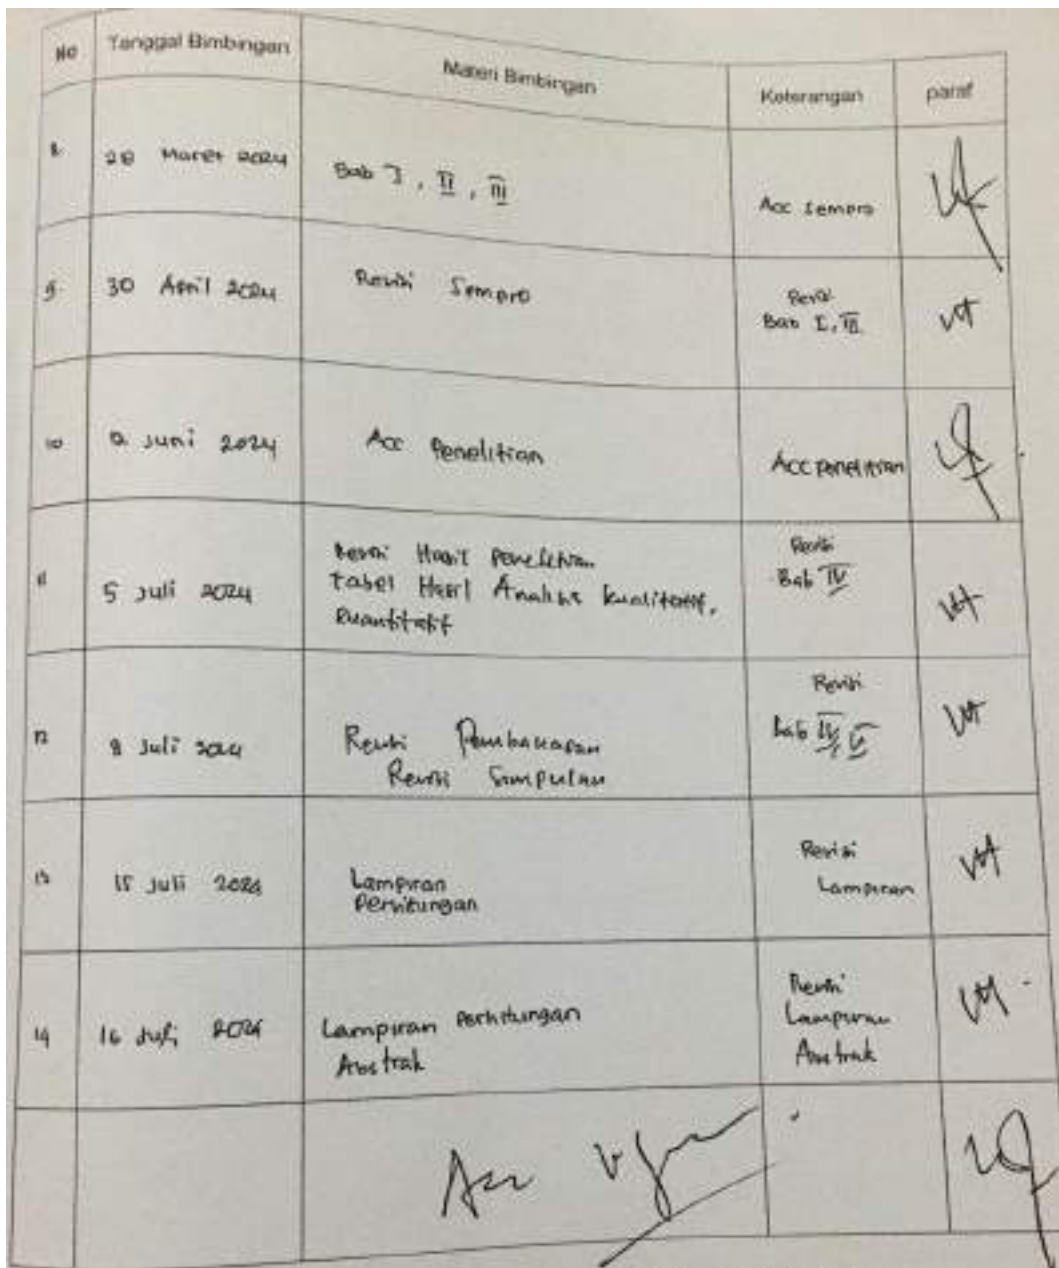 No Tanggal Bimbingan Materi Bimbingan Keterangan paraf
8. 28 Maret 2024 Bab I, II, III Acc Sempro
9. 30 April 2024 Revisi Sempro Revisi
Bab I, III
10 Juni 2024 Acc Penelitian Acc Penelitian
11 5 Juli 2024 Revisi Hasil Penelitian Revisi
Tabel Hasil Analisis kualitatif, Bab IV
kuantitatif
12 8 Juli 2024 Revisi Pembahasan Revisi
Revisi Simpulan Bab IV, V
13 15 Juli 2024 Lampiran Revisi
Perhitungan Lampiran
14 16 Juli 2024 Lampiran Perhitungan Revisi
Abstrak Lampiran
Abstrak
Acc